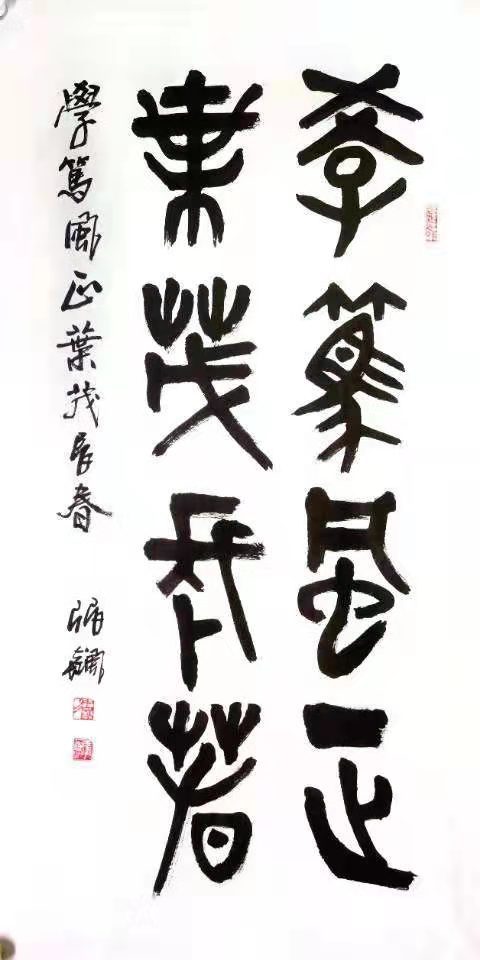 學篤風正
葉茂長春
學篤風正葉茂長春
張